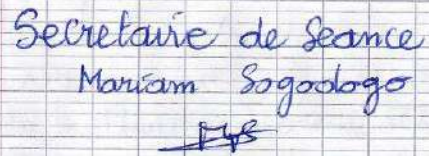 Secretaire de Seance
Mariam Sogodogo